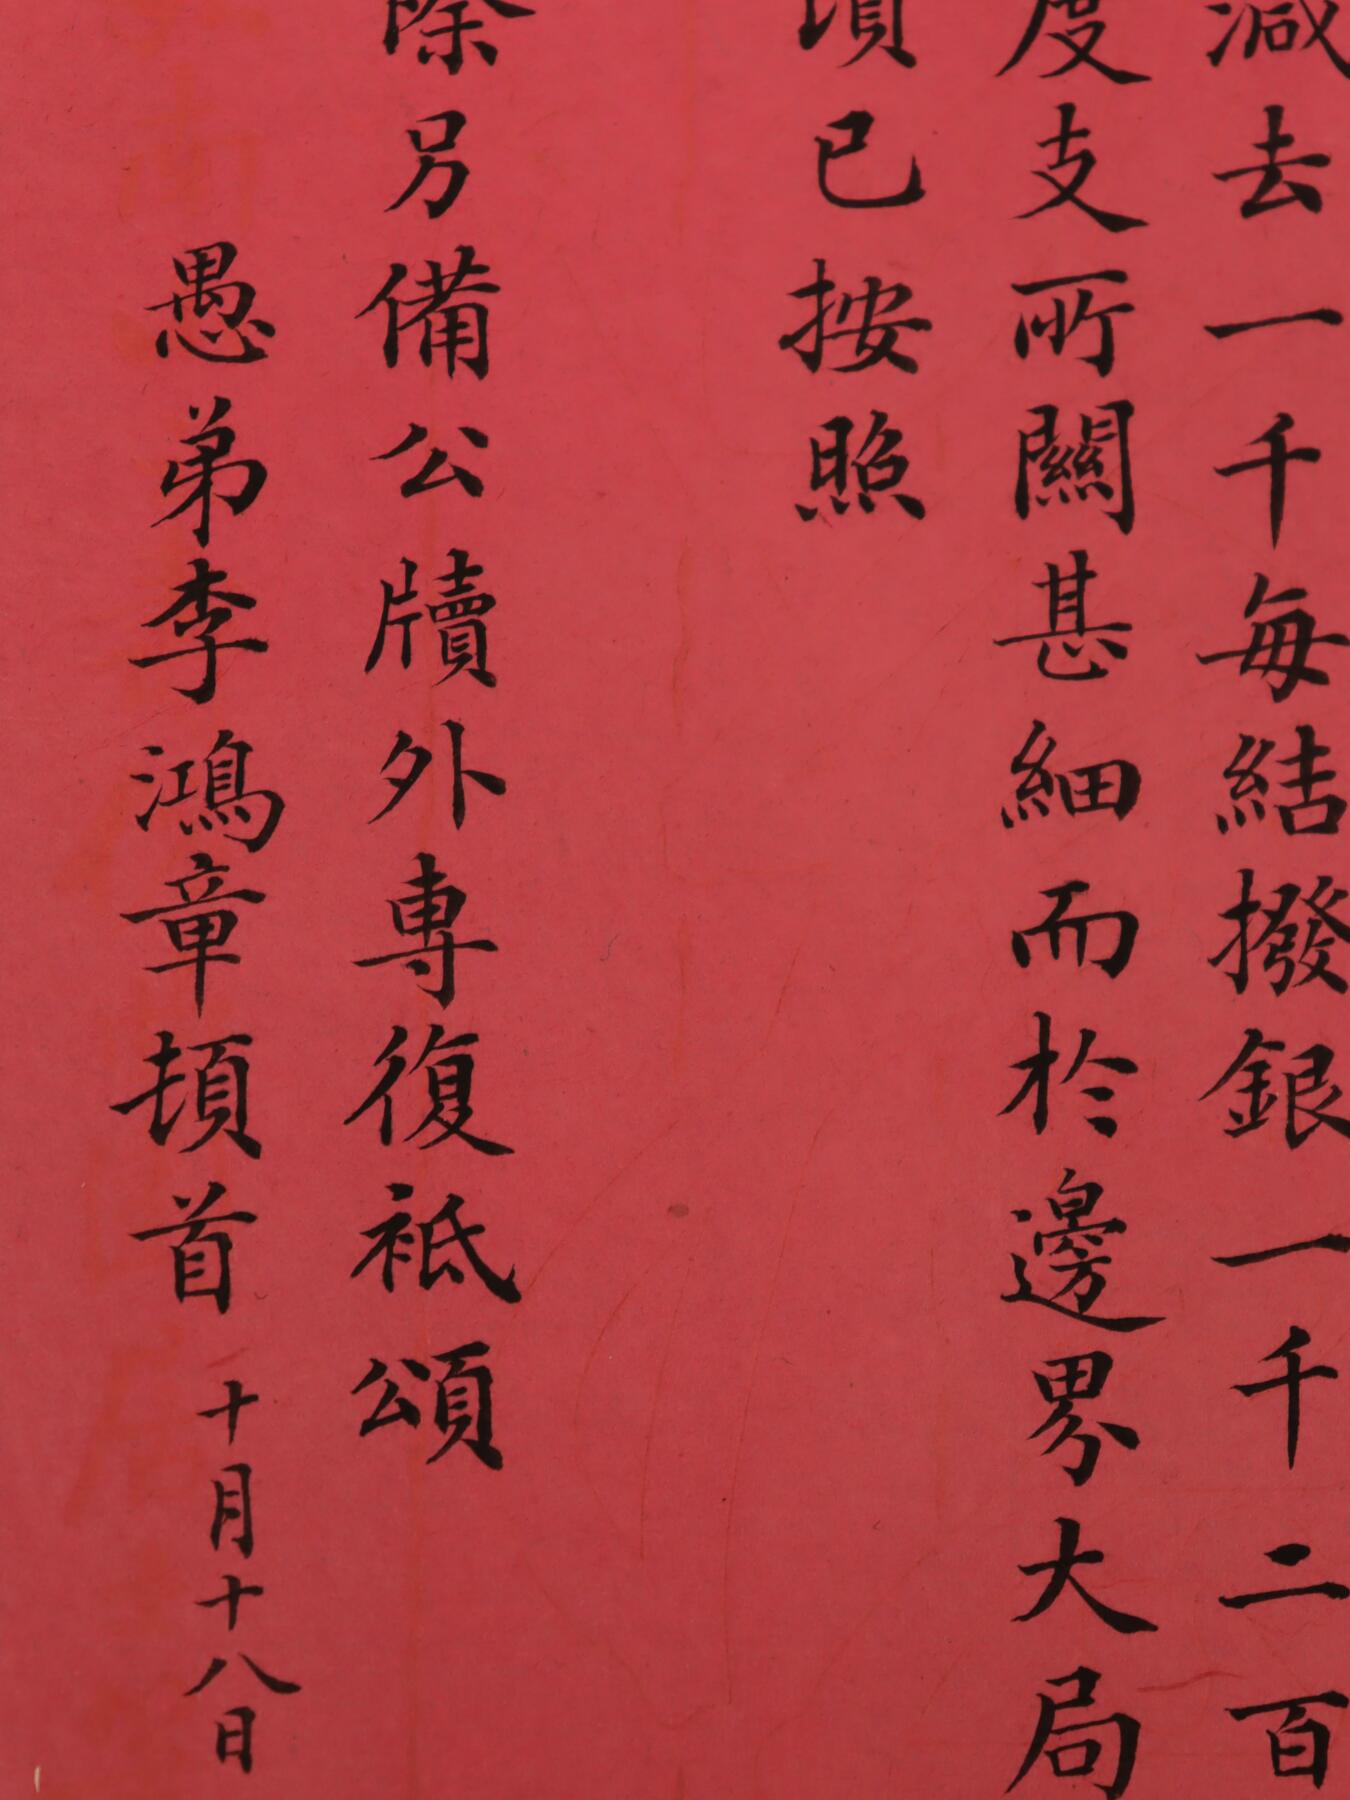 減去一千每結撥銀一千二百
度支所關甚細而於邊界大局
項已按照
除另備公牘外專復祗頌
愚弟李鴻章頓首 十月十八日